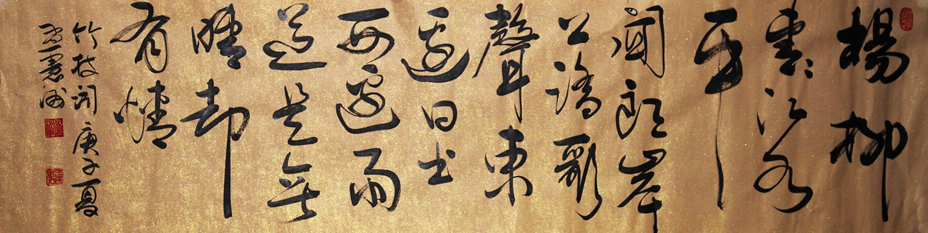 楊柳
青〻江水
平
聞郎岸
上踏歌
聲東
邊日出
西邊雨
道是無
晴却
有情
竹枝词 庚子夏